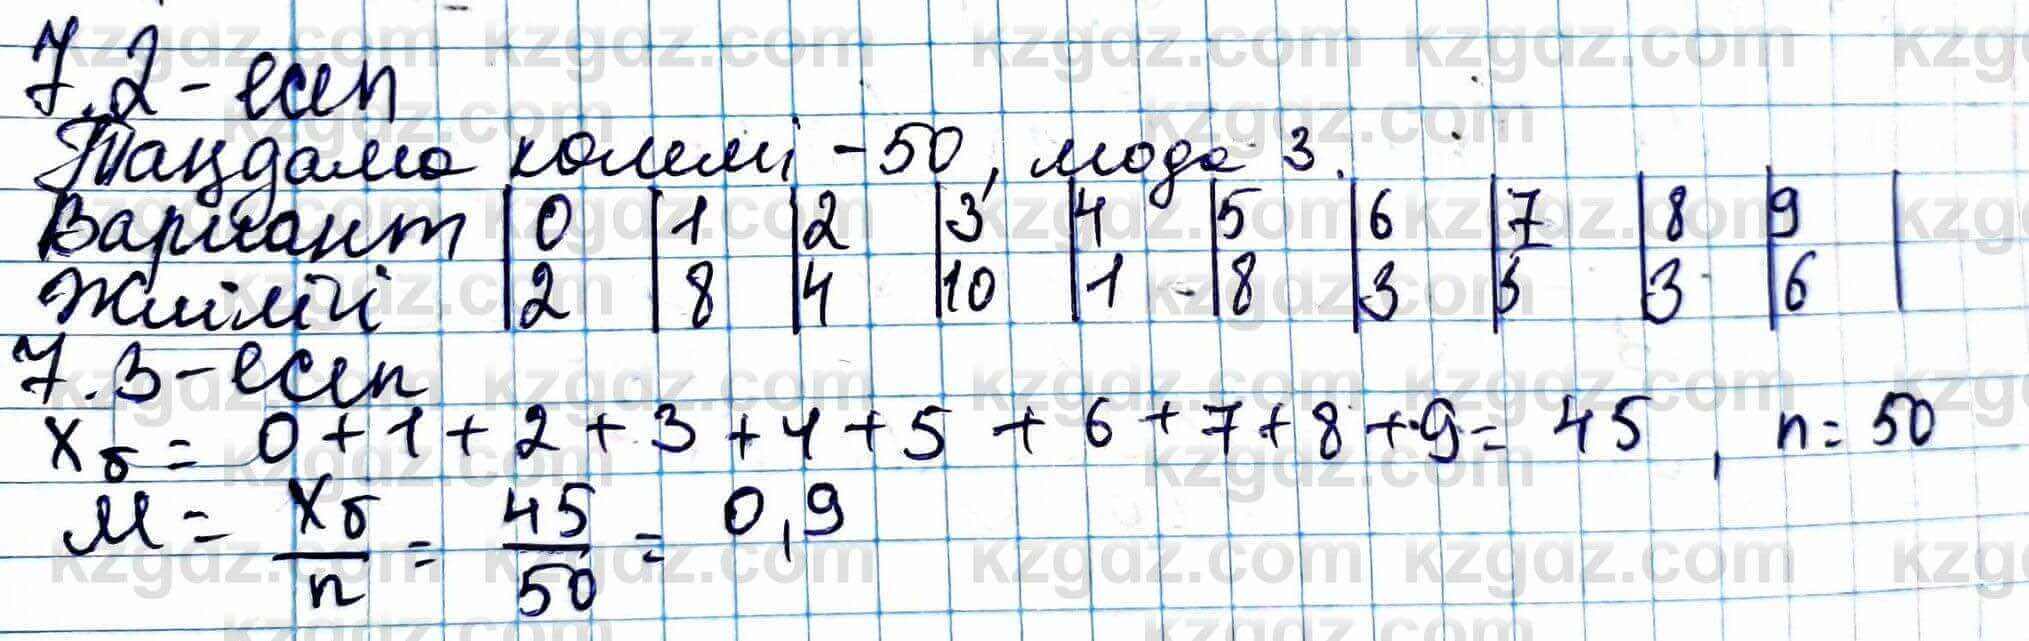 7.2-есеп
Таңдама көлемі - 50, мода 3.
Вариант | 0 | 1 | 2 | 3 | 4 | 5 | 6 | 7 | 8 | 9 |
Жиілігі | 2 | 8 | 4 | 10 | 1 | 8 | 3 | 5 | 3 | 6 |
7.3-есеп
Xδ = 0+1+2+3+4+5+6+7+8+9= 45, n= 50
M = Xδ/n = 45/50 = 0,9
kzgdz.com